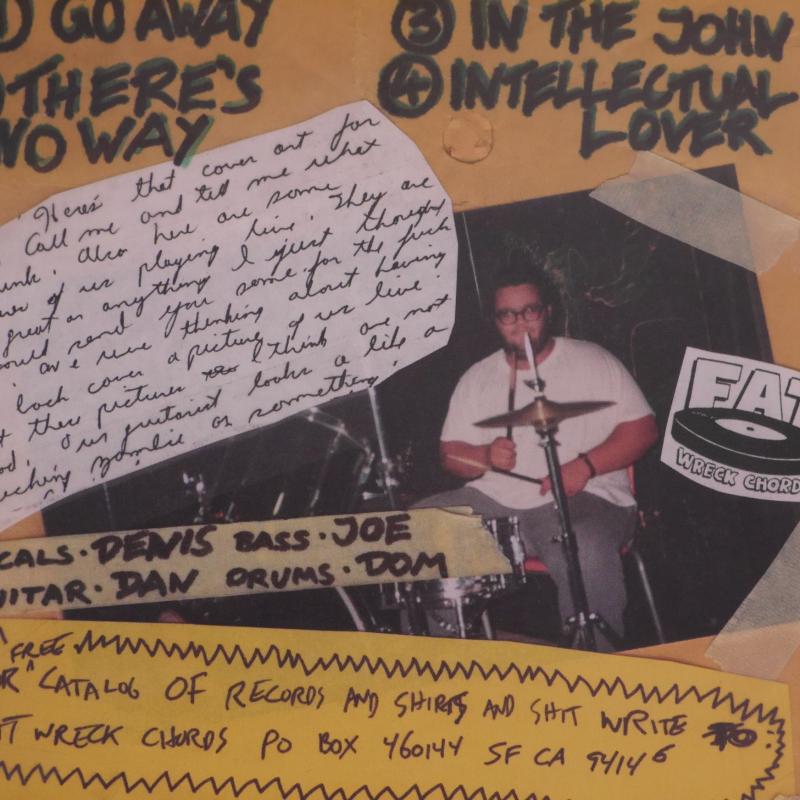 ) GO AWAY
THERE'S
NO WAY
③ IN THE JOHN
④ INTELLECTUAL
LOVER
Here's that cover art for
Call me and tell me what
unk. Also here are some
of us playing live. They are
great or anything I just thought
ould send you some for the fuck
ave were thinking about having
back cover a picture of us live.
t these pictures I think are not
od. Our guitarist looks a like a
ucking zombie or sommething.
FAT
WRECK CHORD
CALS·DENIS BASS·JOE
UITAR·DAN DRUMS·DOM
FREE
R ^ CATALOG OF RECORDS AND SHIRTS AND SHIT WRITE TO:
AT WRECK CHORDS PO BOX 460144 SF CA 94146